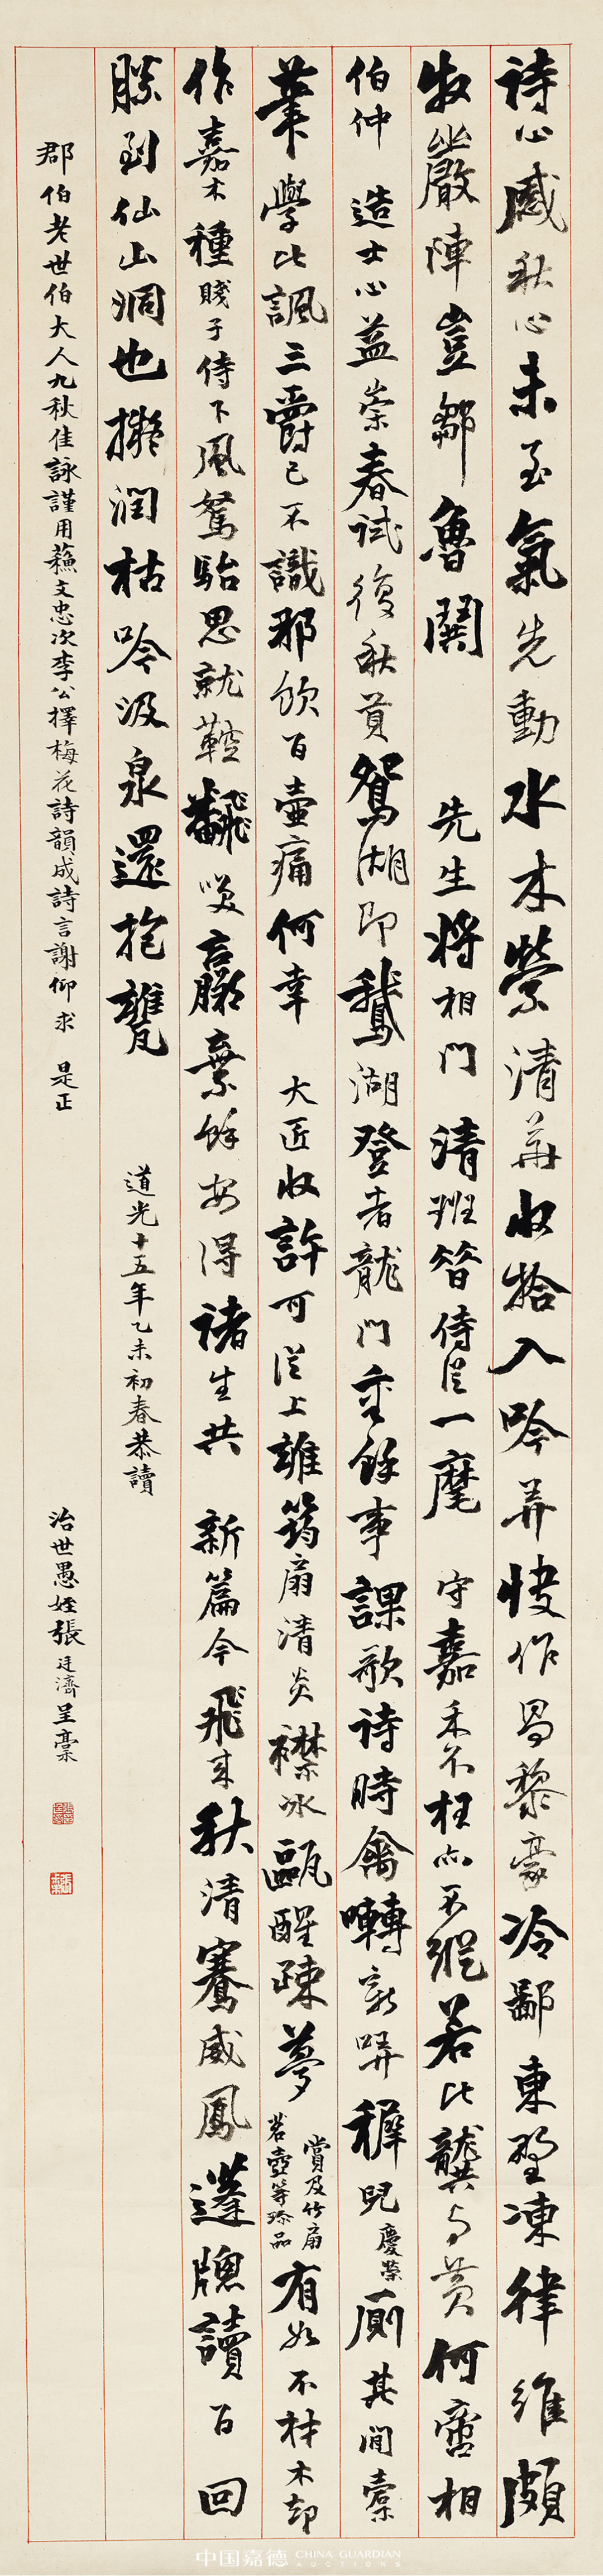 詩心感秋心未至氣先動水木榮清華收拾入吟弄快作昌黎豪冷鄙東野凍律維頗
牧嚴陣豈鄒魯鬨先生將相門清班簪侍從一麾守嘉禾不枉亦不縱若比龔與黃何啻相
伯仲造士心益崇春試復秋貢鴛湖即鵝湖登者龍門重餘事課歌詩時禽囀新哢穉兒慶榮廁其間橐
筆學比諷三爵已不識那飲百壺痛何幸大匠收許可從上誰筠扇清炎襟冰甌醒疎夢賞及竹扇茗壺等珍品有如不材木却
作嘉木種賤子侍下風駑駘思就鞚翻飛嘆羸棄餘安得諸生共新篇今飛來秋清騫威鳳蓬牕讀百回
勝到仙山洞也擬潤枯吟汲泉還抱甕
道光十五年乙未初春恭讀
郡伯老世伯大人九秋佳詠謹用蘓文忠次李公擇梅花詩韻成詩言謝仰求是正
治世愚姪張廷濟呈藁
中国嘉德 CHINA GUARDIAN AUCTIONS